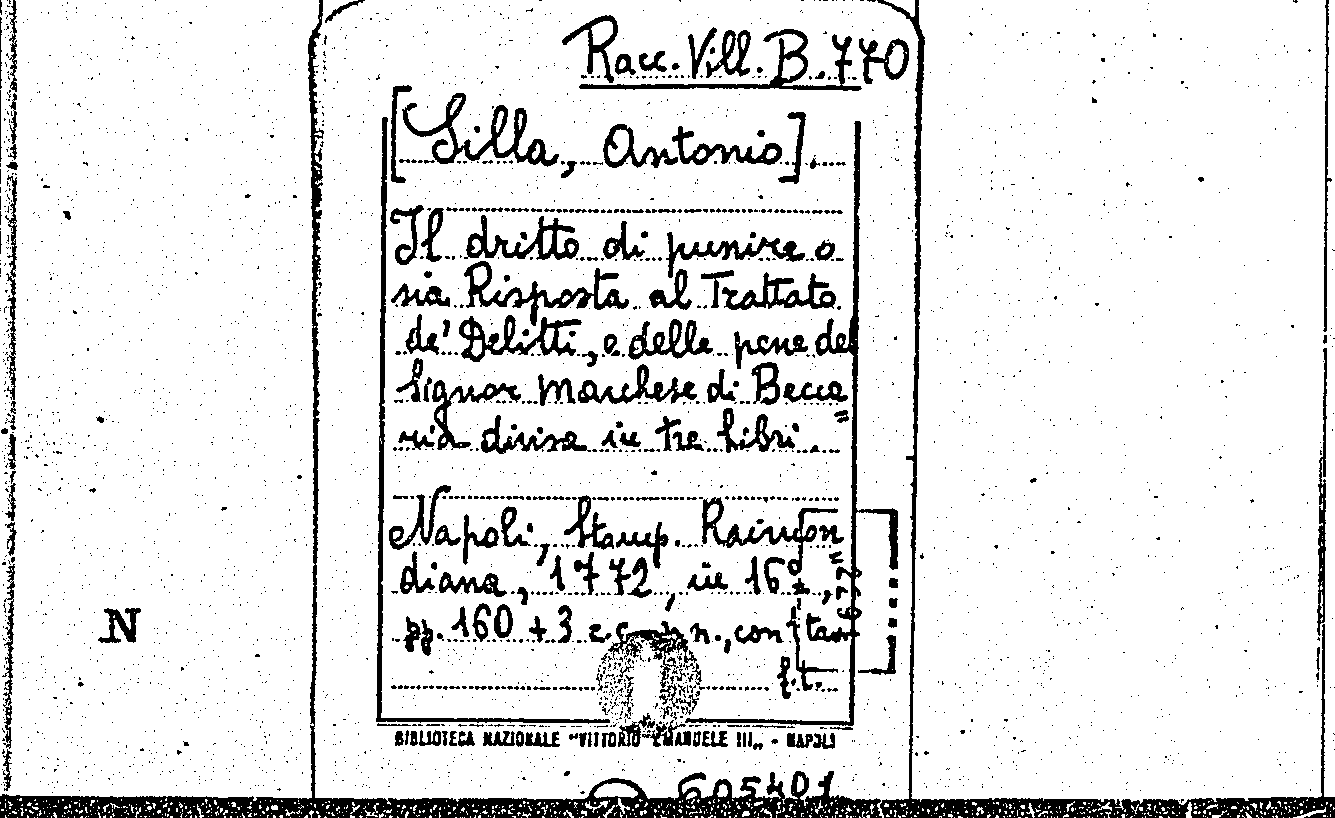 Racc. Vill. B. 770
[Silla, Antonio].
Il dritto di punire o
sia Risposta al Trattato
de' Delitti, e delle pene del
Signor Marchese di Becca=
ria divisa in tre libri.
Napoli, Stamp. Raimon=
diana, 1772, in 16°,
pp. 160 + 3 n.n., con 1 tav.
f.t.
N
BIBLIOTECA NAZIONALE "VITTORIO EMANUELE III" - NAPOLI
605401